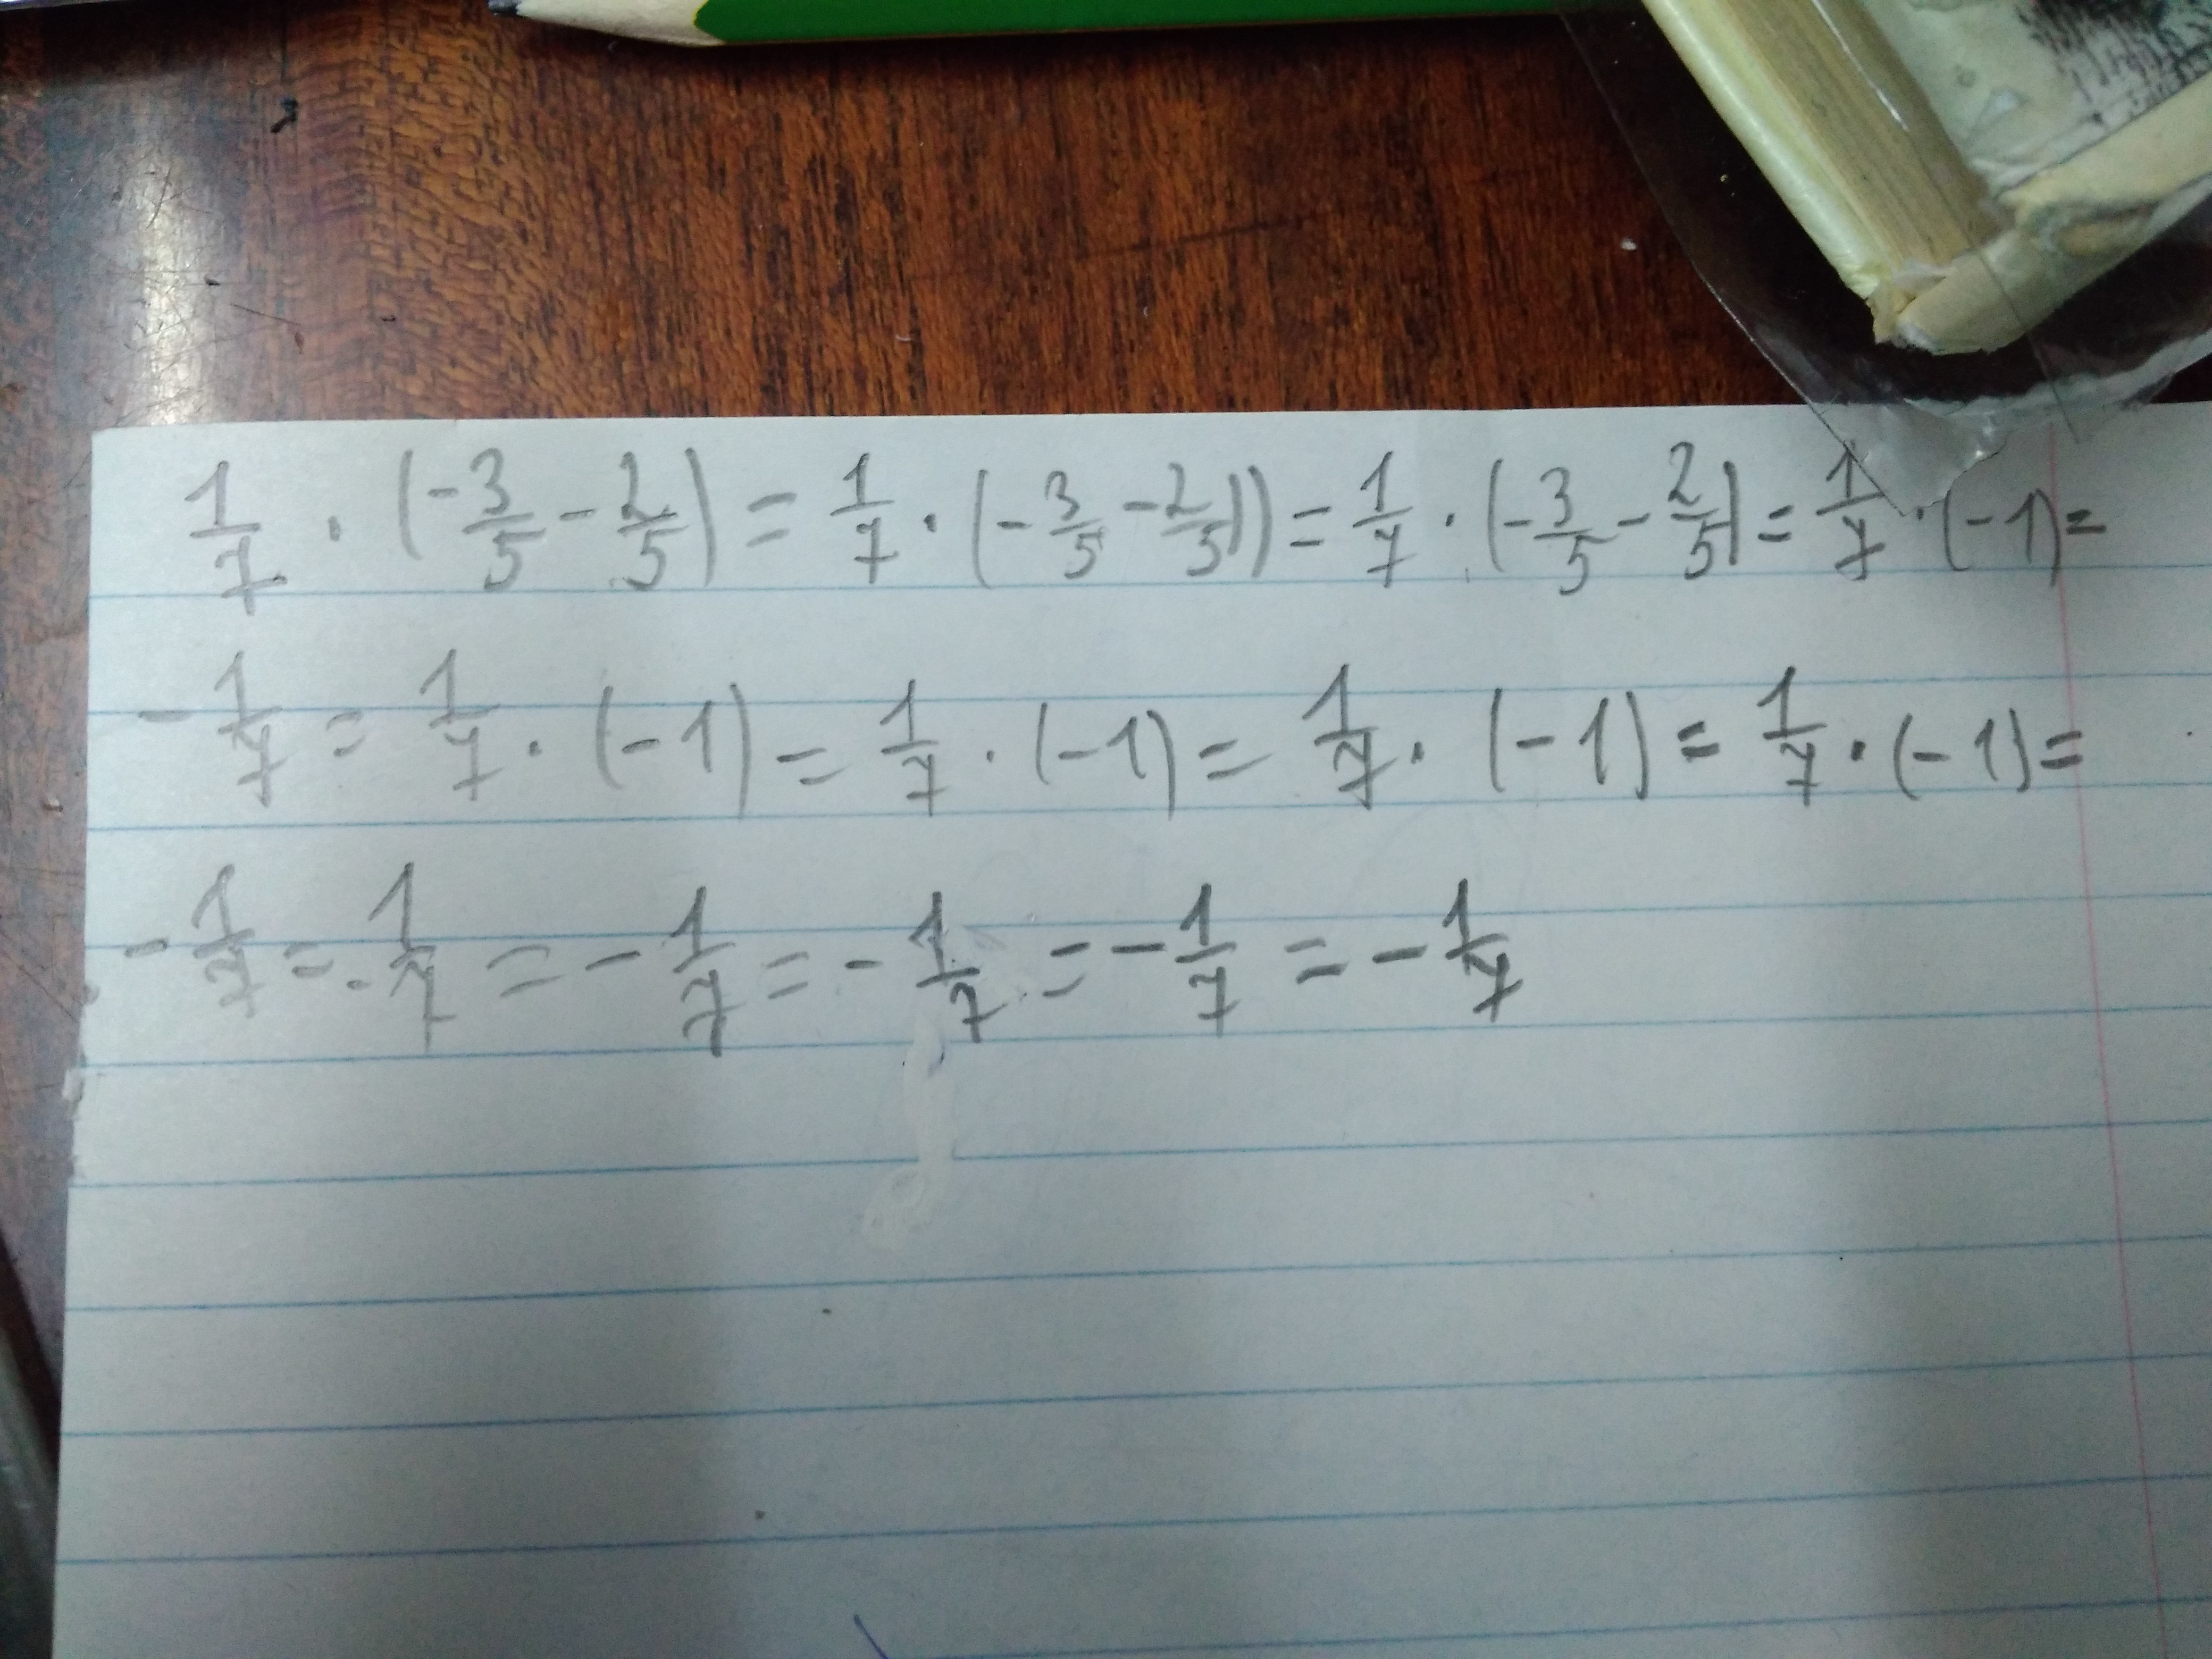 1/7 · (-3/5 - 2/5) = 1/7 · (-3/5 - 2/5)) = 1/7 · (-3/5 - 2/5) = 1/7 · (-1) =
-1/7 = 1/7 · (-1) = 1/7 · (-1) = 1/7 · (-1) = 1/7 · (-1) =
-1/7 = -1/7 = -1/7 = -1/7 = -1/7 = -1/7